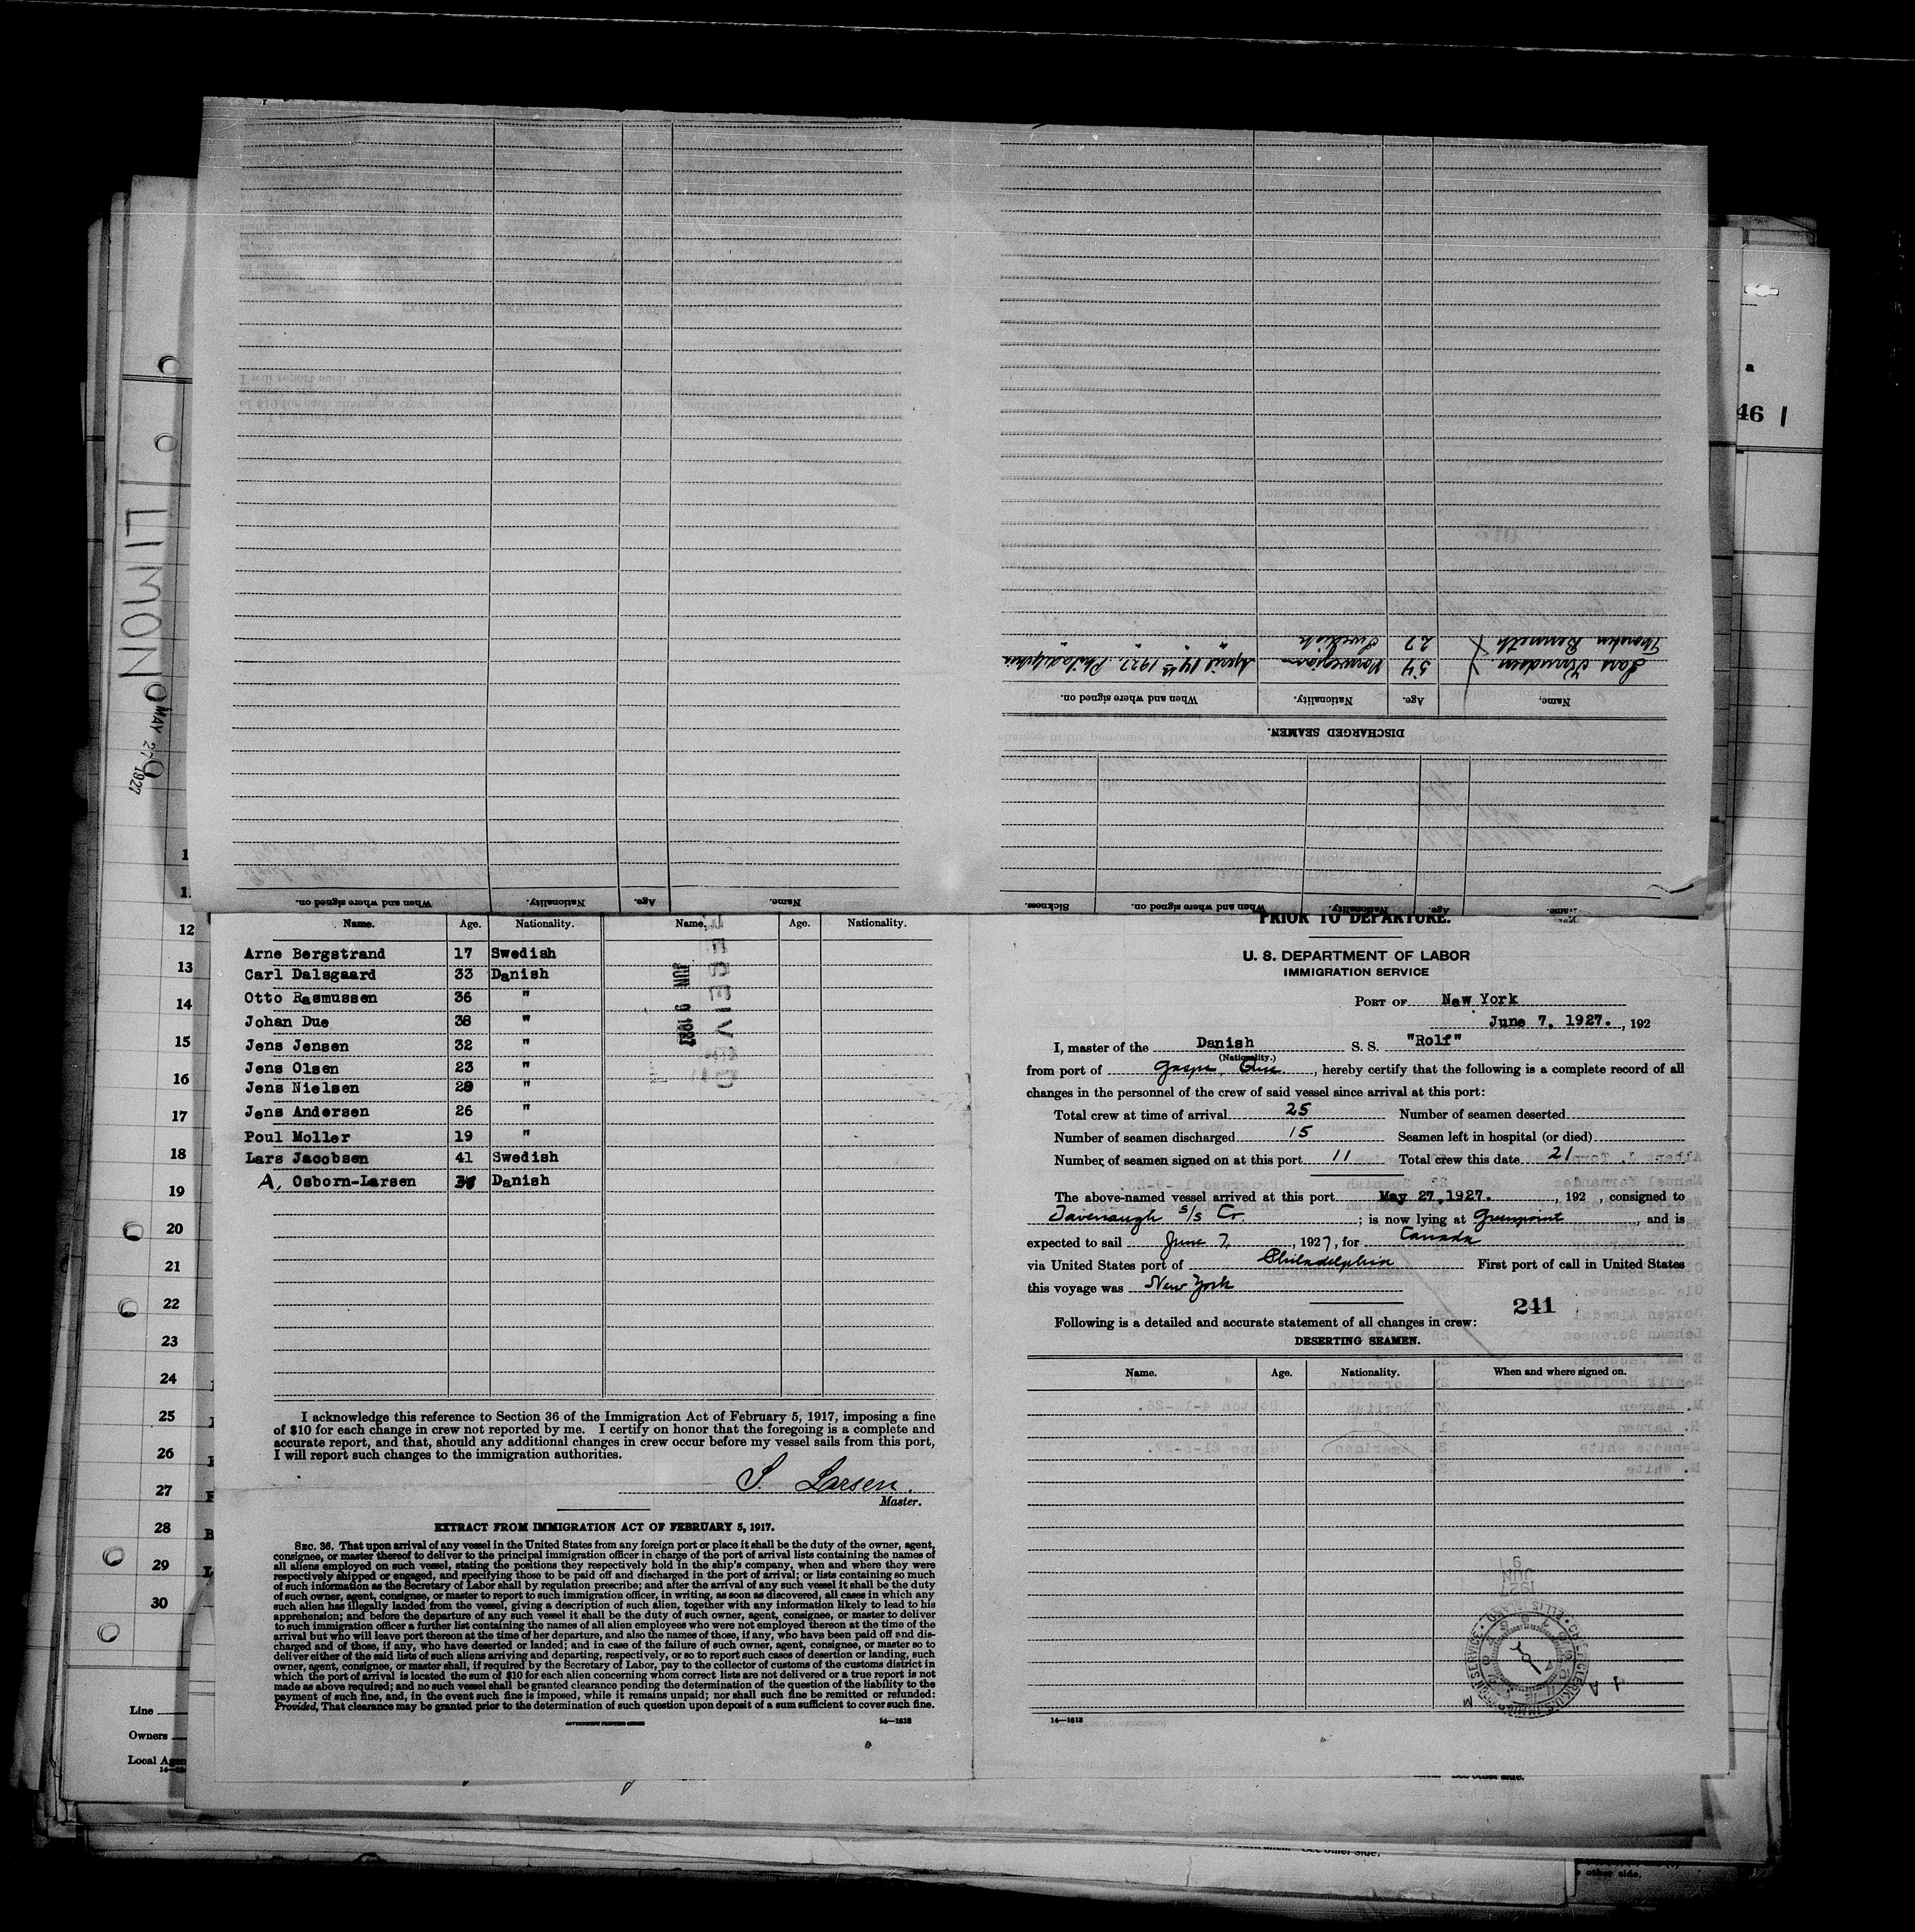 LIMON
MAY 27 1927
a
46
Name. Age. Nationality. When and where signed on.
DISCHARGED SEAMEN.
Name. Age. Nationality. When and where signed on.
Lars Knudsen. 54 Norwegian April 14th 1927. Philadelphia
Thorsten Benneth 27 Swedish " " "
Name. Age. Nationality. When and where signed on. Sickness.
12
13
14
15
16
17
18
19
20
21
22
23
24
25
26
27
28
29
30
Line
Owners
Local Agen
Name. Age. Nationality. Name. Age. Nationality.
Arne Bergstrand 17 Swedish
Carl Dalsgaard 33 Danish
Otto Rasmussen 36 "
Johan Due 38 "
Jens Jensen 32 "
Jens Olsen 23 "
Jens Nielsen 29 "
Jens Andersen 26 "
Poul Moller 19 "
Lars Jacobsen 41 Swedish
A. Osborn-Larsen Danish
RECEIVED
JUN 9 1927
I acknowledge this reference to Section 36 of the Immigration Act of February 5, 1917, imposing a fine
of $10 for each change in crew not reported by me. I certify on honor that the foregoing is a complete and
accurate report, and that, should any additional changes in crew occur before my vessel sails from this port,
I will report such changes to the immigration authorities.
S. Larsen.
Master.
EXTRACT FROM IMMIGRATION ACT OF FEBRUARY 5, 1917.
SEC. 36. That upon arrival of any vessel in the United States from any foreign port or place it shall be the duty of the owner, agent,
consignee, or master thereof to deliver to the principal immigration officer in charge of the port of arrival lists containing the names of
all aliens employed on such vessel, stating the positions they respectively hold in the ship's company, when and where they were
respectively shipped or engaged, and specifying those to be paid off and discharged in the port of arrival; or lists containing so much
of such information as the Secretary of Labor shall by regulation prescribe; and after the arrival of any such vessel it shall be the duty
of such owner, agent, consignee, or master to report to such immigration officer, in writing, as soon as discovered, all cases in which any
such alien has illegally landed from the vessel, giving a description of such alien, together with any information likely to lead to his
apprehension; and before the departure of any such vessel it shall be the duty of such owner, agent, consignee, or master to deliver
to such immigration officer a further list containing the names of all alien employees who were not employed thereon at the time of the
arrival but who will leave port thereon at the time of her departure, and also the names of those, if any, who have been paid off and dis-
charged and of those, if any, who have deserted or landed; and in case of the failure of such owner, agent, consignee, or master so to
deliver either of the said lists of such aliens arriving and departing, respectively, or so to report such cases of desertion or landing, such
owner, agent, consignee, or master shall, if required by the Secretary of Labor, pay to the collector of customs of the customs district in
which the port of arrival is located the sum of $10 for each alien concerning whom correct lists are not delivered or a true report is not
made as above required; and no such vessel shall be granted clearance pending the determination of the question of the liability to the
payment of such fine, and, in the event such fine is imposed, while it remains unpaid; nor shall such fine be remitted or refunded:
Provided, That clearance may be granted prior to the determination of such question upon deposit of a sum sufficient to cover such fine.
GOVERNMENT PRINTING OFFICE 14—1613
PRIOR TO DEPARTURE.
U. S. DEPARTMENT OF LABOR
IMMIGRATION SERVICE
PORT OF New York
June 7, 1927. , 192
I, master of the Danish S. S. "Rolf"
(Nationality.)
from port of Gaspe, Que , hereby certify that the following is a complete record of all
changes in the personnel of the crew of said vessel since arrival at this port:
Total crew at time of arrival 25 Number of seamen deserted
Number of seamen discharged 15 Seamen left in hospital (or died)
Number of seamen signed on at this port 11 Total crew this date 21
The above-named vessel arrived at this port May 27,1927. , 192 , consigned to
Tavenaugh S/S Co. ; is now lying at Greenpoint , and is
expected to sail June 7, , 1927, for Canada
via United States port of Philadelphia First port of call in United States
this voyage was New York
241
Following is a detailed and accurate statement of all changes in crew:
DESERTING SEAMEN.
Name. Age. Nationality. When and where signed on.
14—1613
other side.